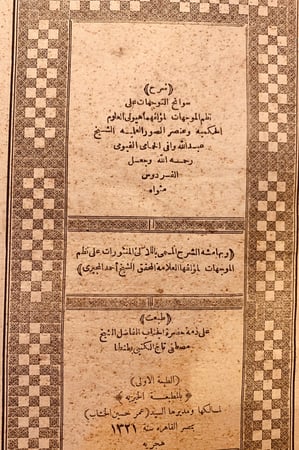 ﴿شرح﴾
سوانح التوجهات على
نظم الموجهات لمؤلفهما هيولى العلوم
الحكميه وعنصر الصور العلميه الشيخ
عبدالله وافى الحمامى الفيومى
رحمه الله وجعل
الفردوس
مثواه
﴿وبهامشه الشرح المسمى باللآلئ المنثورات على نظم
الموجهات لمؤلفهما العلامة المحقق الشيخ أحمد المجيرى﴾
﴿طبعت﴾
على ذمة حضرة الجناب الفاضل الشيخ
مصطفى تاج الكتبى بطنطا
(الطبعة الاولى)
بالمطبعة الخيريه
لمالكها ومديرها السيد (عمر حسين الخشاب)
بمصر القاهره سنة ١٣٢١
هجريه